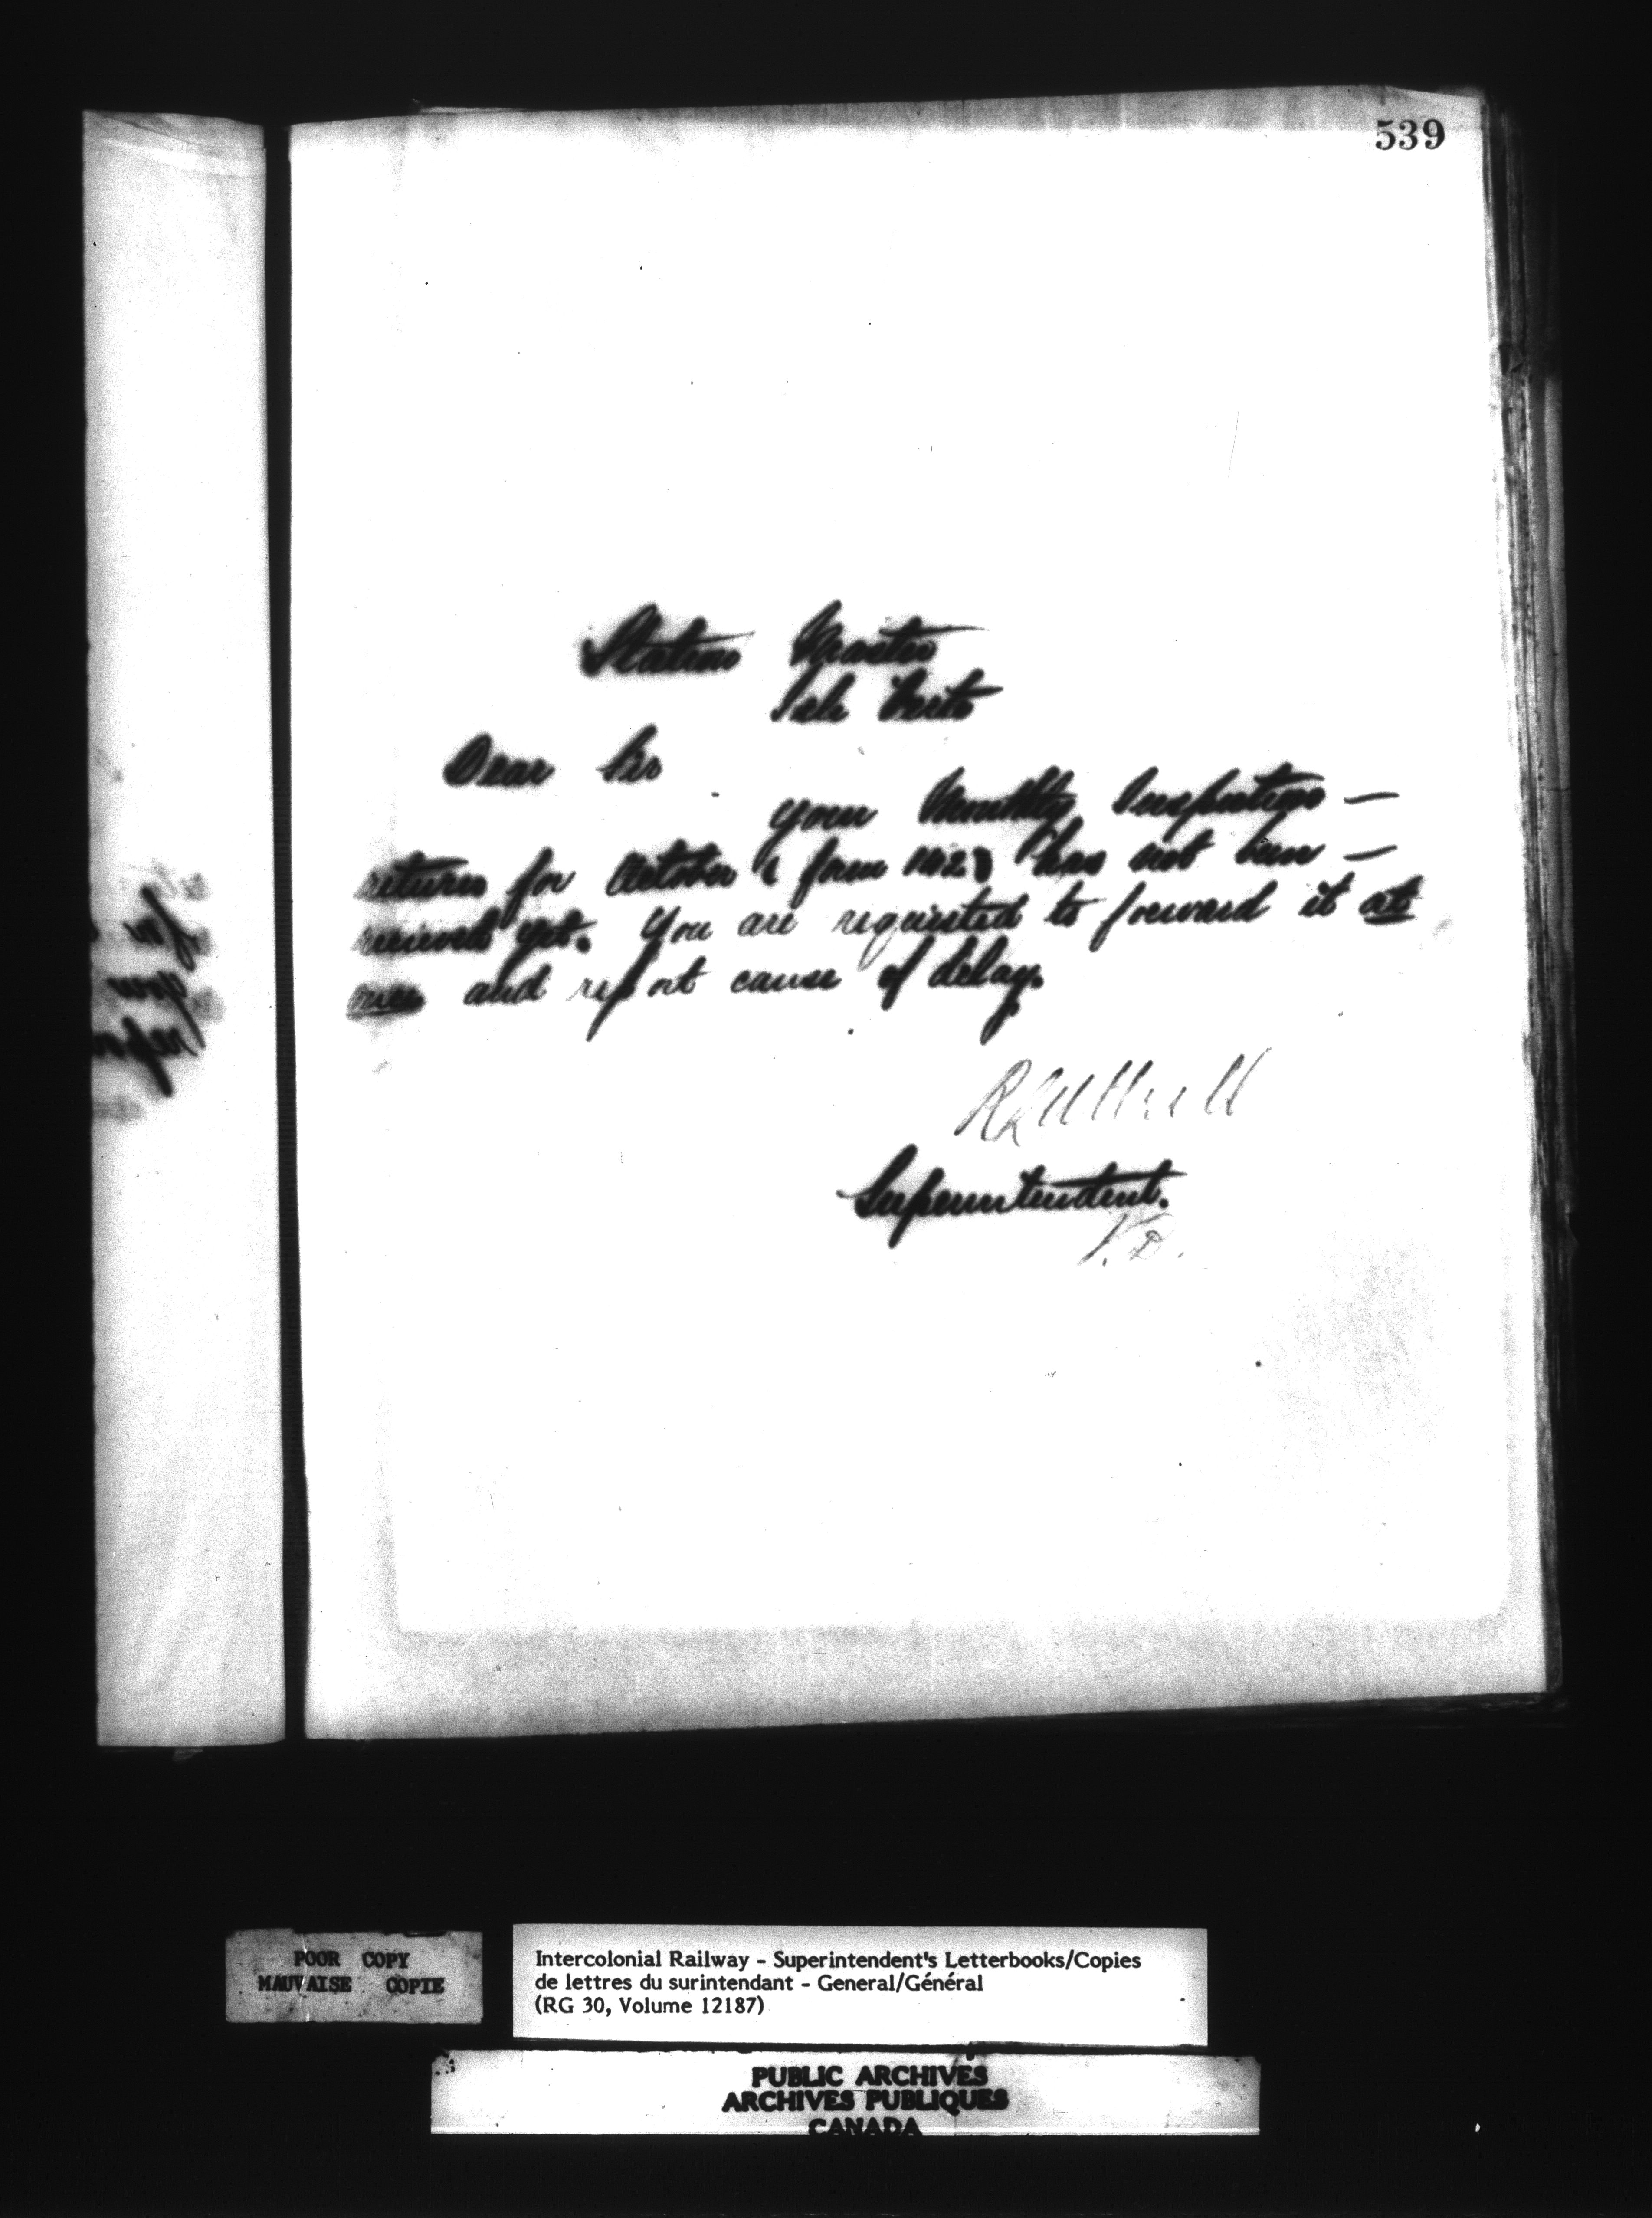 539
Station Master
Isle Verte
Dear Sir
your Monthly Inspection —
return for October ( form 142) has not been —
received yet. You are requested to forward it at
once and report cause of delay.
Superintendent.
POOR COPY
MAUVAISE COPIE
Intercolonial Railway - Superintendent's Letterbooks/Copies
de lettres du surintendant - General/Général
(RG 30, Volume 12187)
PUBLIC ARCHIVES
ARCHIVES PUBLIQUES
CANADA